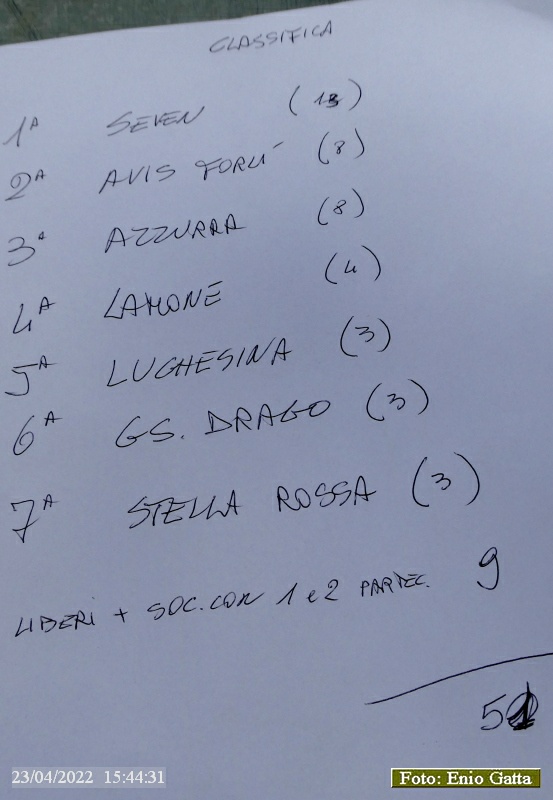 CLASSIFICA
1ª SEVEN (13)
2ª AVIS FORLÍ (8)
3ª AZZURRA (8)
4ª LAMONE (4)
5ª LUGHESINA (3)
6ª GS. DRAGO (3)
7ª STELLA ROSSA (3)
LIBERI + SOC. CON 1 e 2 PARTEC. 9
51
23/04/2022 15:44:31
Foto: Enio Gatta